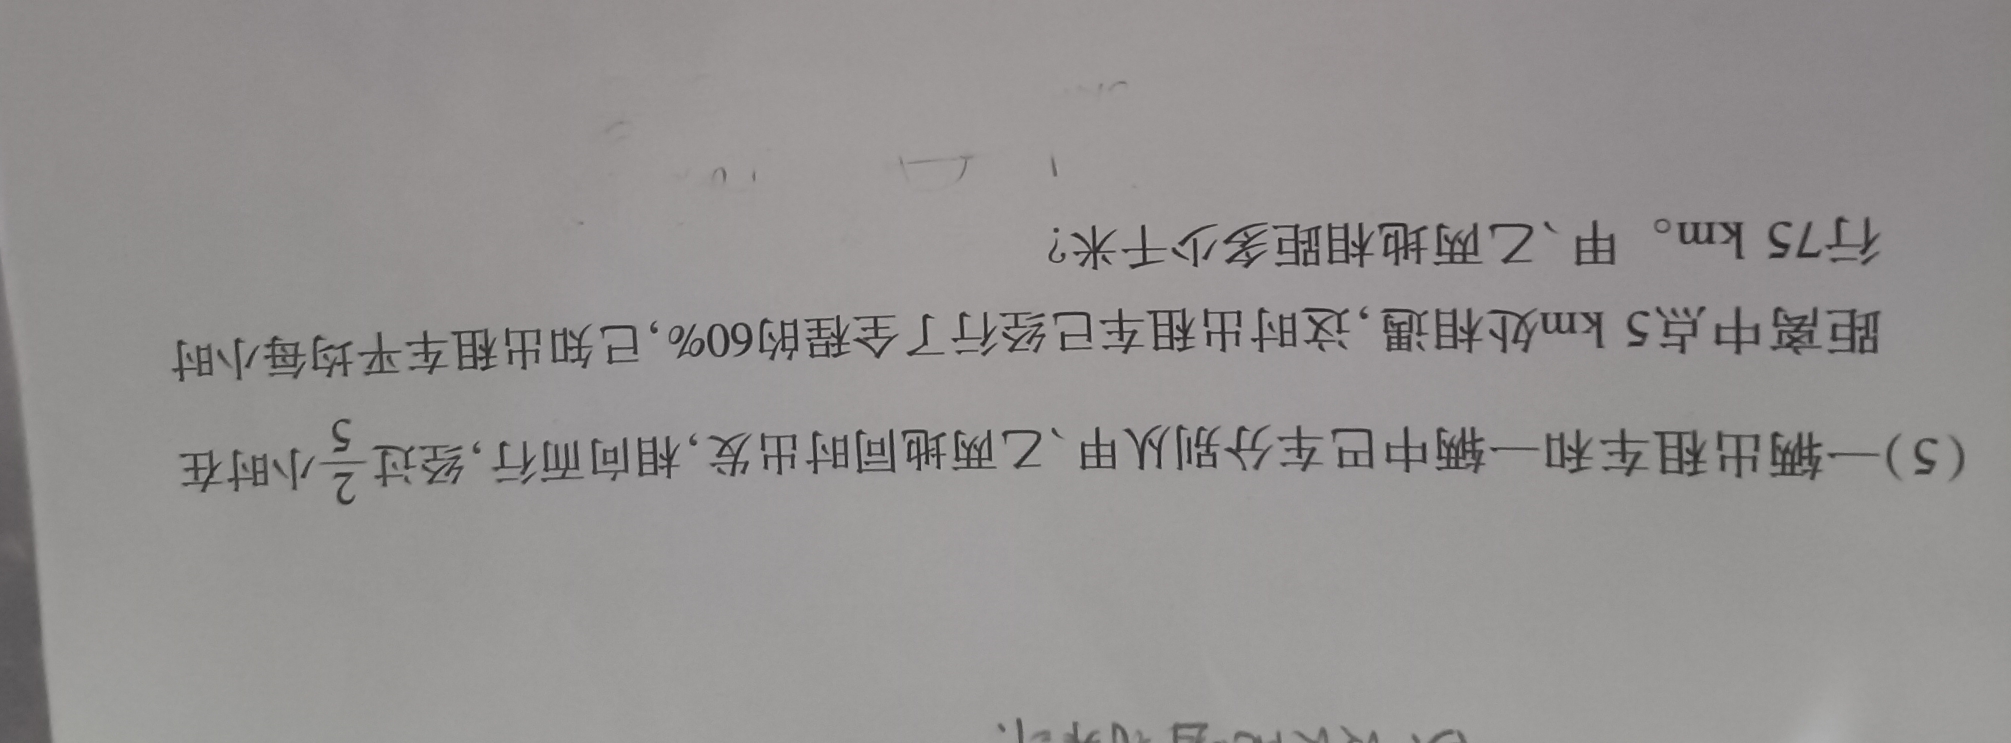 (5)一辆出租车和一辆中巴车分别从甲、乙两地同时出发,相向而行,经过2/5小时在
距离中点5 km处相遇,这时出租车已经行了全程的60%,已知出租车平均每小时
行75 km。甲、乙两地相距多少千米?